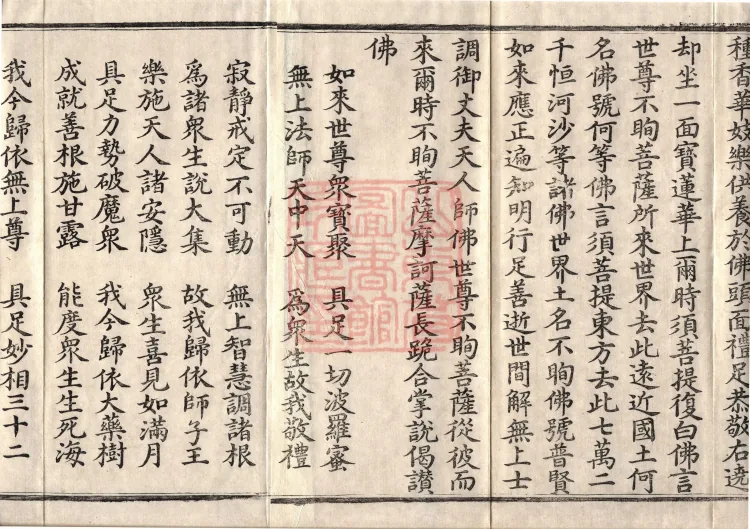 種香華妓樂供養於佛頭面禮足恭敬右遶
却坐一面寶蓮華上爾時須菩提復白佛言
世尊不眴菩薩所來世界去此遠近國土何
名佛號何等佛言須菩提東方去此七萬二
千恒河沙等諸佛世界土名不眴佛號普賢
如來應正遍知明行足善逝世間解無上士
調御丈夫天人師佛世尊不眴菩薩從彼而
來爾時不眴菩薩摩訶薩長跪合掌說偈讃
佛
如來世尊衆寶聚 具足一切波羅蜜
無上法師天中天 爲衆生故我敬禮
寂靜戒定不可動 無上智慧調諸根
爲諸衆生說大集 故我歸依師子王
樂施天人諸安隱 衆生喜見如滿月
具足力勢破魔衆 我今歸依大藥樹
成就善根施甘露 能度衆生生死海
我今歸依無上尊 具足妙相三十二